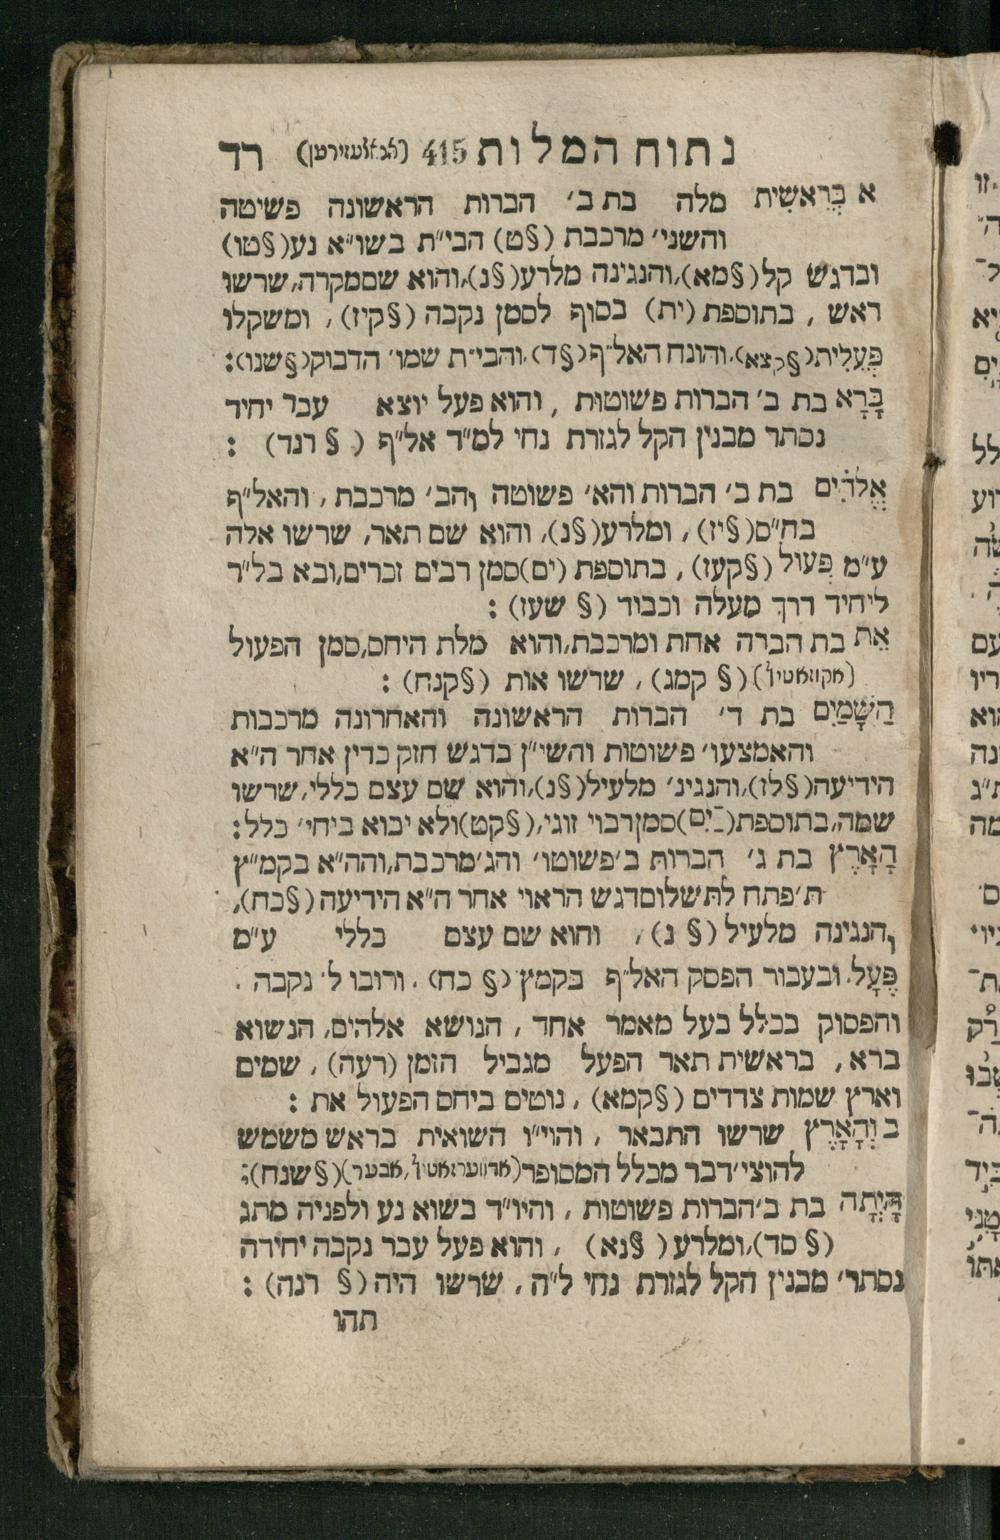 נתוח המלות 415 (אנאליזירטן) רד
א בְּרֵאשִׁית מלה בת ב׳ הברות הראשונה פשיטה
והשני׳ מרכבת (§ט) הבי״ת בשו״א נע(§טו)
ובדגש קל(§מא),והנגינה מלרע(§נ),והוא שםמקרה,שרשו
ראש , בתוספת (ית) בסוף לסמן נקבה (§קיז) , ומשקלו
פְּעֵלִית(§קצא),והונח האל״ף(§ד),והבי״ת שמו׳ הדבוק(§שנו):
בָּרָא בת ב׳ הברות פשוטות , והוא פעל יוצא עבר יחיד
נסתר מבנין הקל לגזרת נחי למ״ד אל״ף ( § רנד) :
אֱלֹהִים בת ב׳ הברות והא׳ פשוטה והב׳ מרכבת , והאל״ף
בח״ס(§יז) , ומלרע(§נ), והוא שם תאר, שרשו אלה
ע״מ פְּעוֹל (§קעז) , בתוספת (ים)סמן רבים זכרים,ובא בל״ר
ליחיד דרך מעלה וכבוד (§ שעז) :
אֵת בת הברה אחת ומרכבת,והוא מלת היחס,סמן הפעול
(אקוזאטיו) (§ קמג) , שרשו אות (§קנח) :
הַשָּׁמַיִם בת ד׳ הברות הראשונה והאחרונה מרכבות
והאמצעו׳ פשוטות והשי״ן בדגש חזק כדין אחר ה״א
הידיעה(§לז),והנגינ׳ מלעיל(§נ),והוא שם עצם כללי,שרשו
שמה,בתוספת(ַיִם)סמןרבוי זוגי,(§קט)ולא יבוא ביחי׳ כלל:
הָאָרֶץ בת ג׳ הברות ב׳פשוטו׳ והג׳מרכבת,והה״א בקמ״ץ
ת׳פתח לתשלוםדגש הראוי אחר ה״א הידיעה(§כח),
והנגינה מלעיל (§ נ) , והוא שם עצם כללי ע״מ
פֶּעָל. ובעבור הפסק האל״ף בקמץ (§ כח) . ורובו ל׳ נקבה .
והפסוק בכלל בעל מאמר אחד , הנושא אלהים, הנשוא
ברא, בראשית תאר הפעל מגביל הזמן (רעה) , שמים
וארץ שמות צדדים (§קמא) , נוטים ביחס הפעול את :
ב וְהָאָרֶץ שרשו התבאר , והוי״ו השואית בראש משמש
להוצי׳דבר מכלל המסופר(אדווערזאטיו,אבער)(§שנח):
הָיְתָה בת ב׳הברות פשוטות , והיו״ד בשוא נע ולפניה מתג
(§ סד),ומלרע( §נא) , והוא פעל עבר נקבה יחידה
נסתר׳ מבנין הקל לגזרת נחי ל״ה , שרשו היה (§ רנה) :
תהו